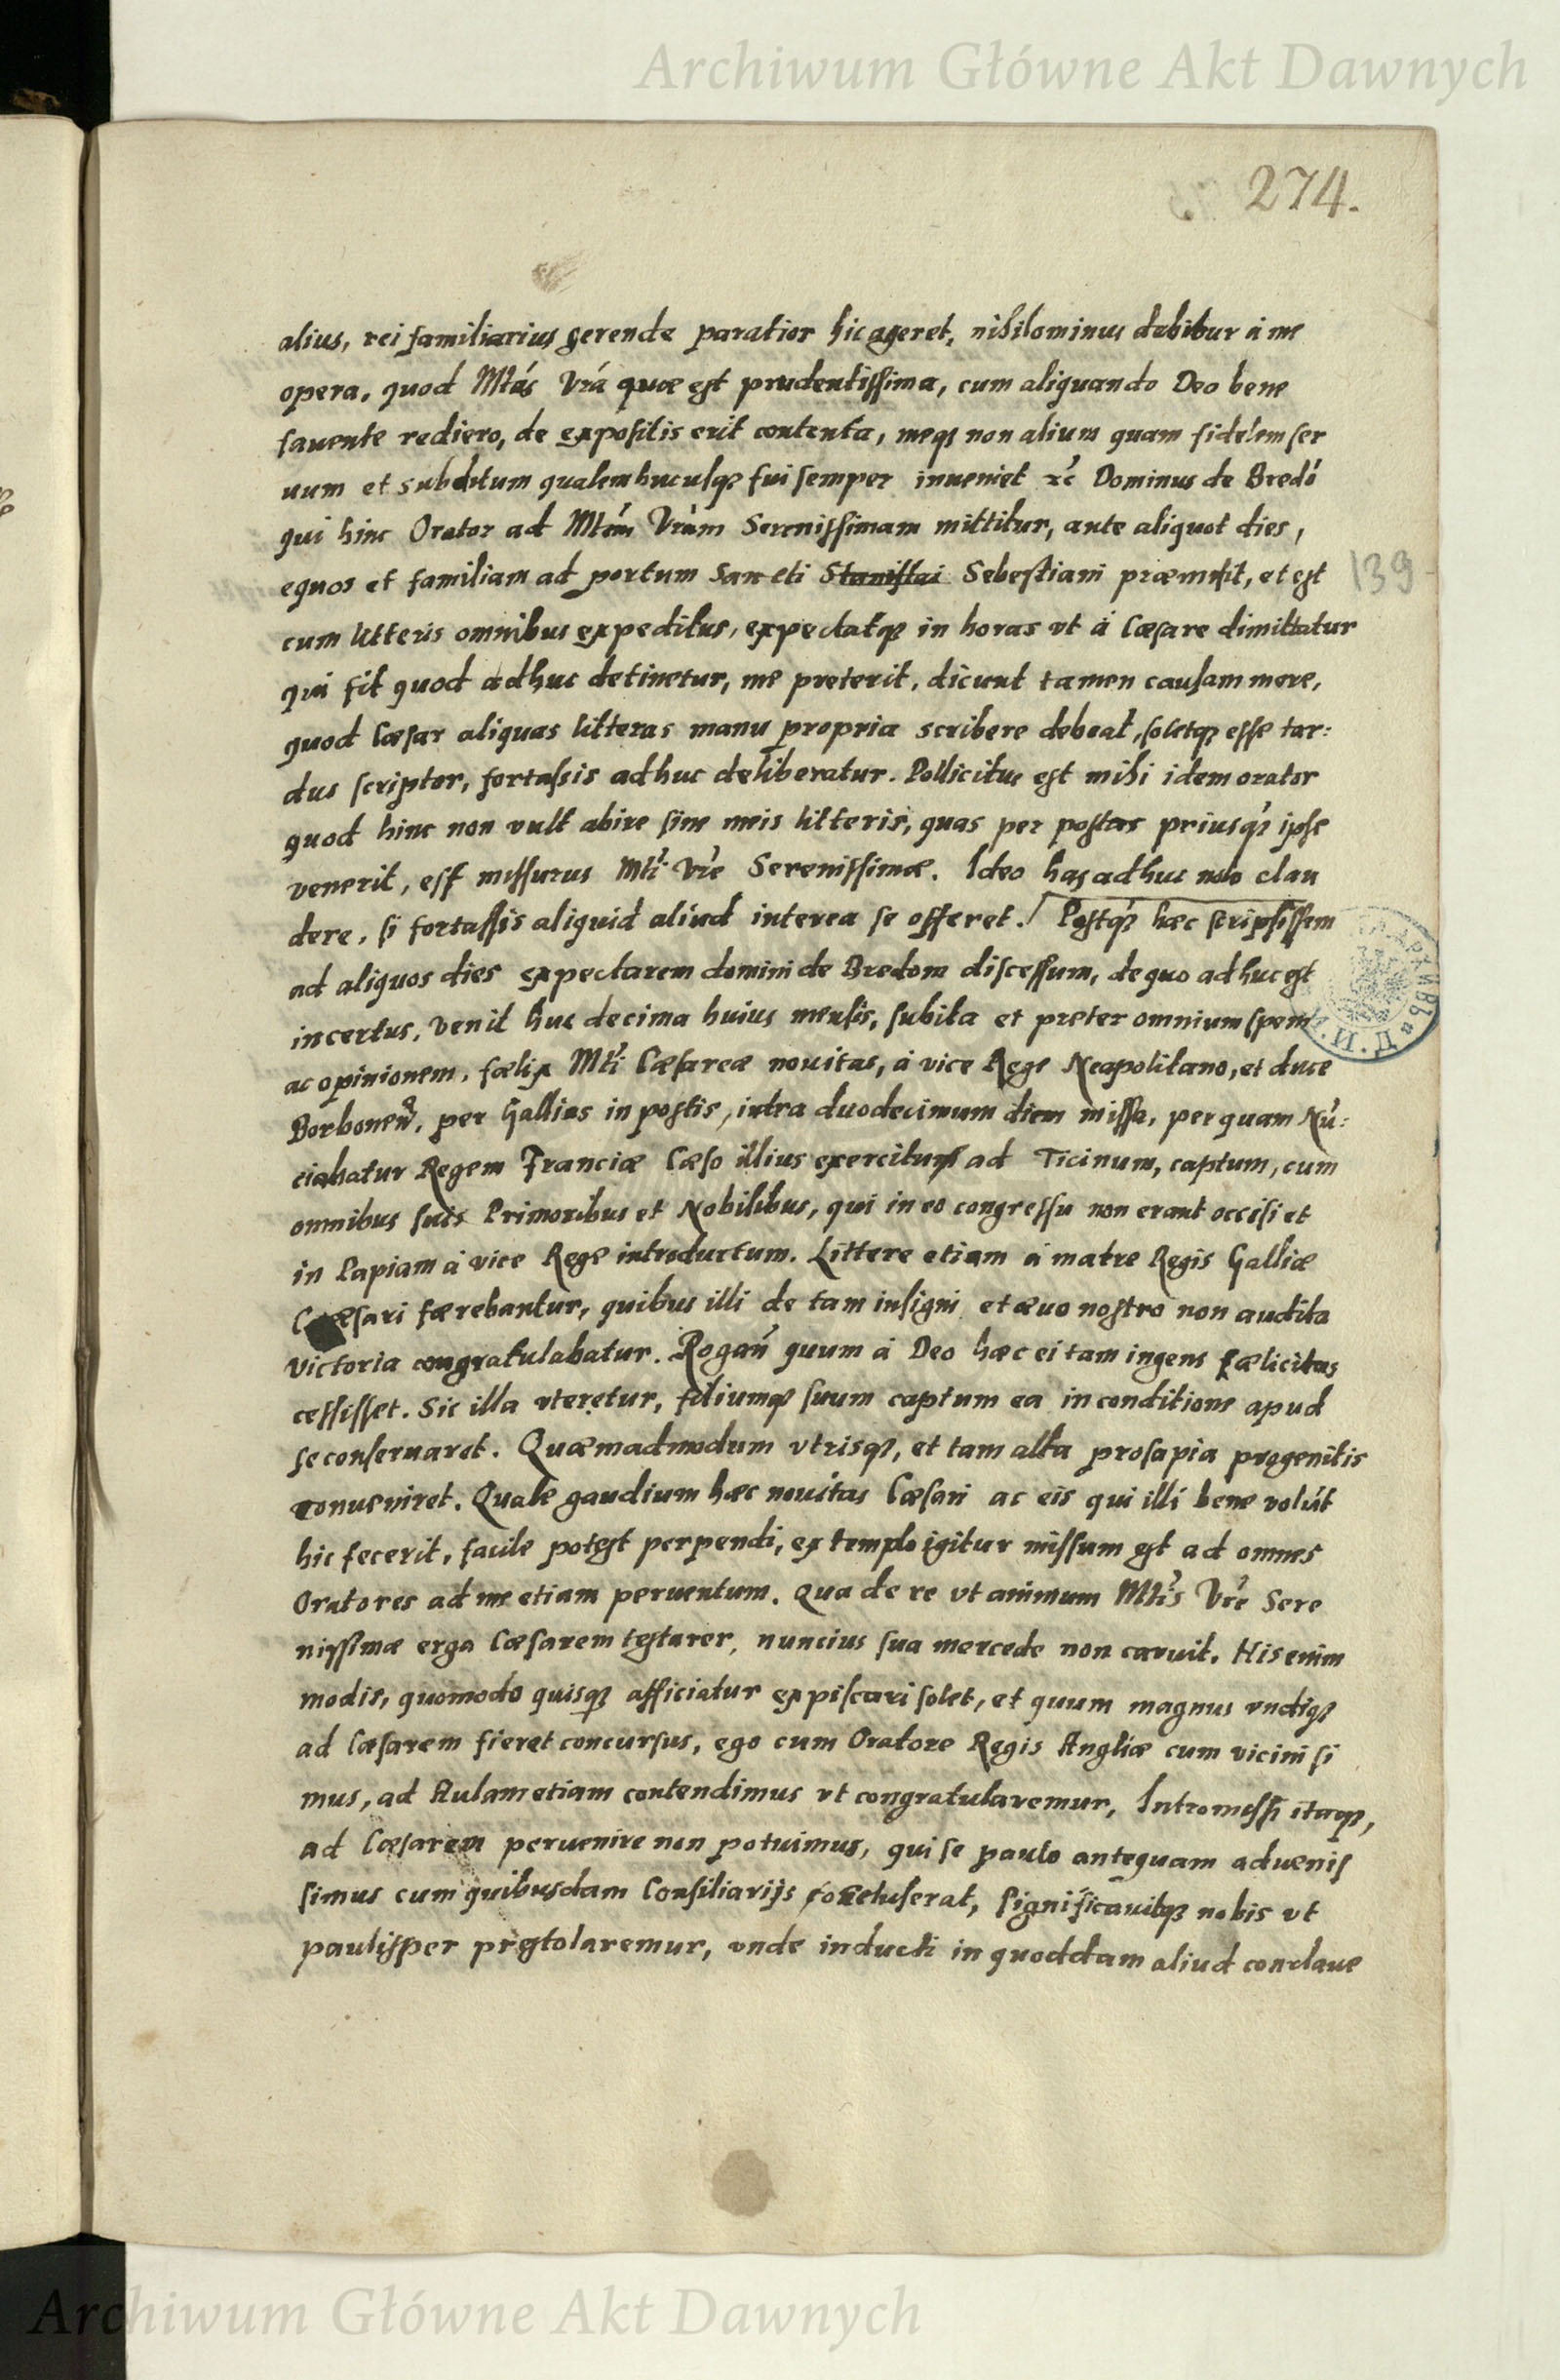 Archiwum Główne Akt Dawnych
274.
alius, rei familiarius gerende paratior hic ageret, nihilominus debitur à me
opera, quod Mtás Vrá quæ est prudentissima, cum aliquando Deo bene
fauente rediero, de expositis erit contenta, meqʒ non alium quam fidelem ser
uum et subditum qualem hucusqʒ fui semper inueniet &c Dominus de Bredó
qui hinc Orator ad Mtém Vrám Serenissimam mittitur, ante aliquot dies,
equos et familiam ad portum Sancti Stanislai Sebestiani præmisit, et est
139
cum litteris omnibus expeditus, expectatqʒ in horas vt à Cæsare dimittatur
qui fit quod adhuc detinetur, me preterit, dicunt tamen causam more,
quod Cæsar aliquas litteras manu propria scribere debeat, soletqʒ esse tar:
dus scriptor, fortassis adhuc deliberatur. Pollicitus est mihi idem orator
quod hinc non vult abire sine meis litteris, quas per postas priusqʒ ipse
venerit, est missurus Mti Vre Serenissimæ. Ideo has adhuc nolo clau
dere, si fortassis aliquid aliud interea se offeret. Postqʒ hæc scripsissem
ad aliquos dies expectarem domini de Bredom discessum, de quo adhuc est
incertus, venit huc decima huius mensis, subita et preter omnium spem
ac opinionem, fælix Mti Cæsareæ nouitas, à vice Rege Neapolitano, et duce
Borbonen̄, per Gallias in postis, intra duodecimum diem missa, per quam Nũ:
ciabatur Regem Franciæ Cæso illius exercitum ad Ticinum, captum, cum
omnibus suis Primoribus et Nobilibus, qui in eo congressu non erant occisi et
in Papiam à vice Rege introductum. Littere etiam à matre Regis Galliæ
Cæsari færebantur, quibus illi de tam insigni et æuo nostro non audita
victoria congratulabatur. Rogan̄ quum à Deo hæc ei tam ingens fælicitas
cessisset. Sic illa vteretur, filiumqʒ suum captum ea in conditione apud
se conseruaret. Quæmadmodum vtrisqʒ, et tam alta prosapia progenitis
conueniret. Quale gaudium hæc nouitas Cæsari ac eis qui illi bene volũt
hic fecerit, facile potest perpendi, ex templo igitur missum est ad omnes
Oratores ad me etiam peruentum. Qua de re vt animum Mtis Vre Sere
nissimæ erga Cæsarem testarer, nuncius sua mercede non caruit. His enim
modis, quomodo quisqʒ afficiatur expiscari solet, et quum magnus vndiqʒ
ad Cæsarem fieret concursus, ego cum Oratore Regis Angliæ cum vicini si
mus, ad Aulam etiam contendimus vt congratularemur, Intromissi itaqʒ,
ad Cæsarem peruenire non potuimus, qui se paulo antequam aduenis
simus cum quibusdam Consiliarijs concluserat, Significauitqʒ nobis vt
paulisper prestolaremur, vnde inducti in quoddam aliud conclaue
Archiwum Główne Akt Dawnych